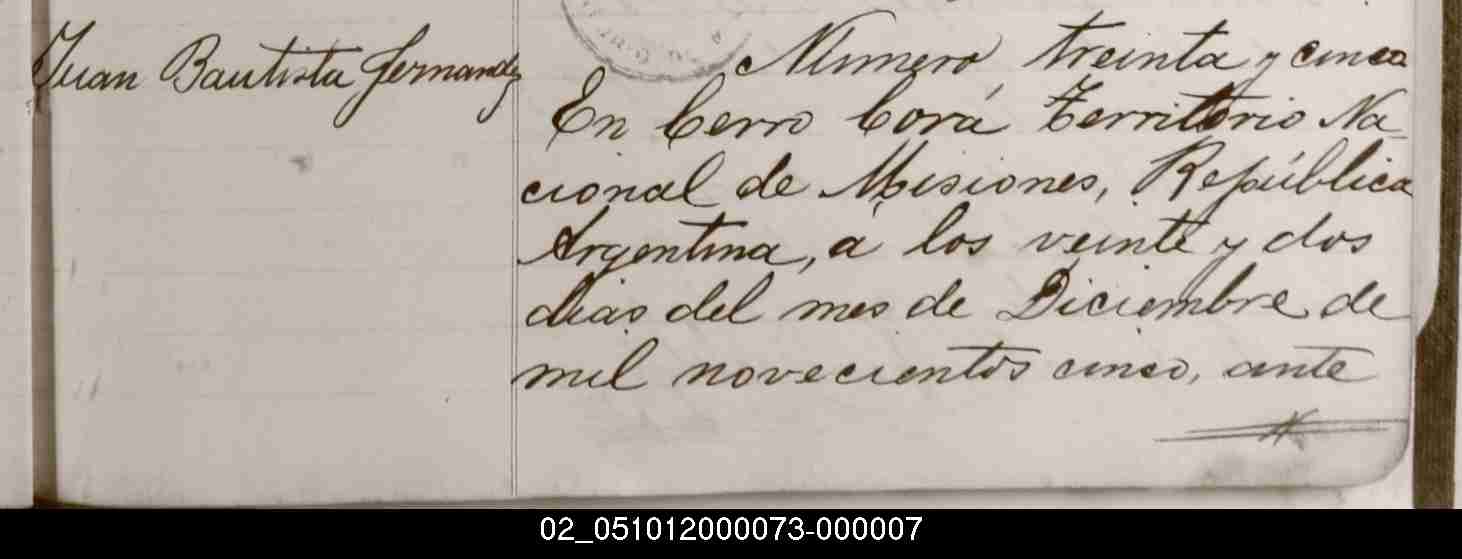 Juan Bautista Fernandz
Número treinta y cinco
En Cerro Corá Territorio Na-
cional de Misiones, República
Argentina, á los veinte y dos
dias del mes de Diciembre de
mil novecientos cinco, ante
02_051012000073-000007